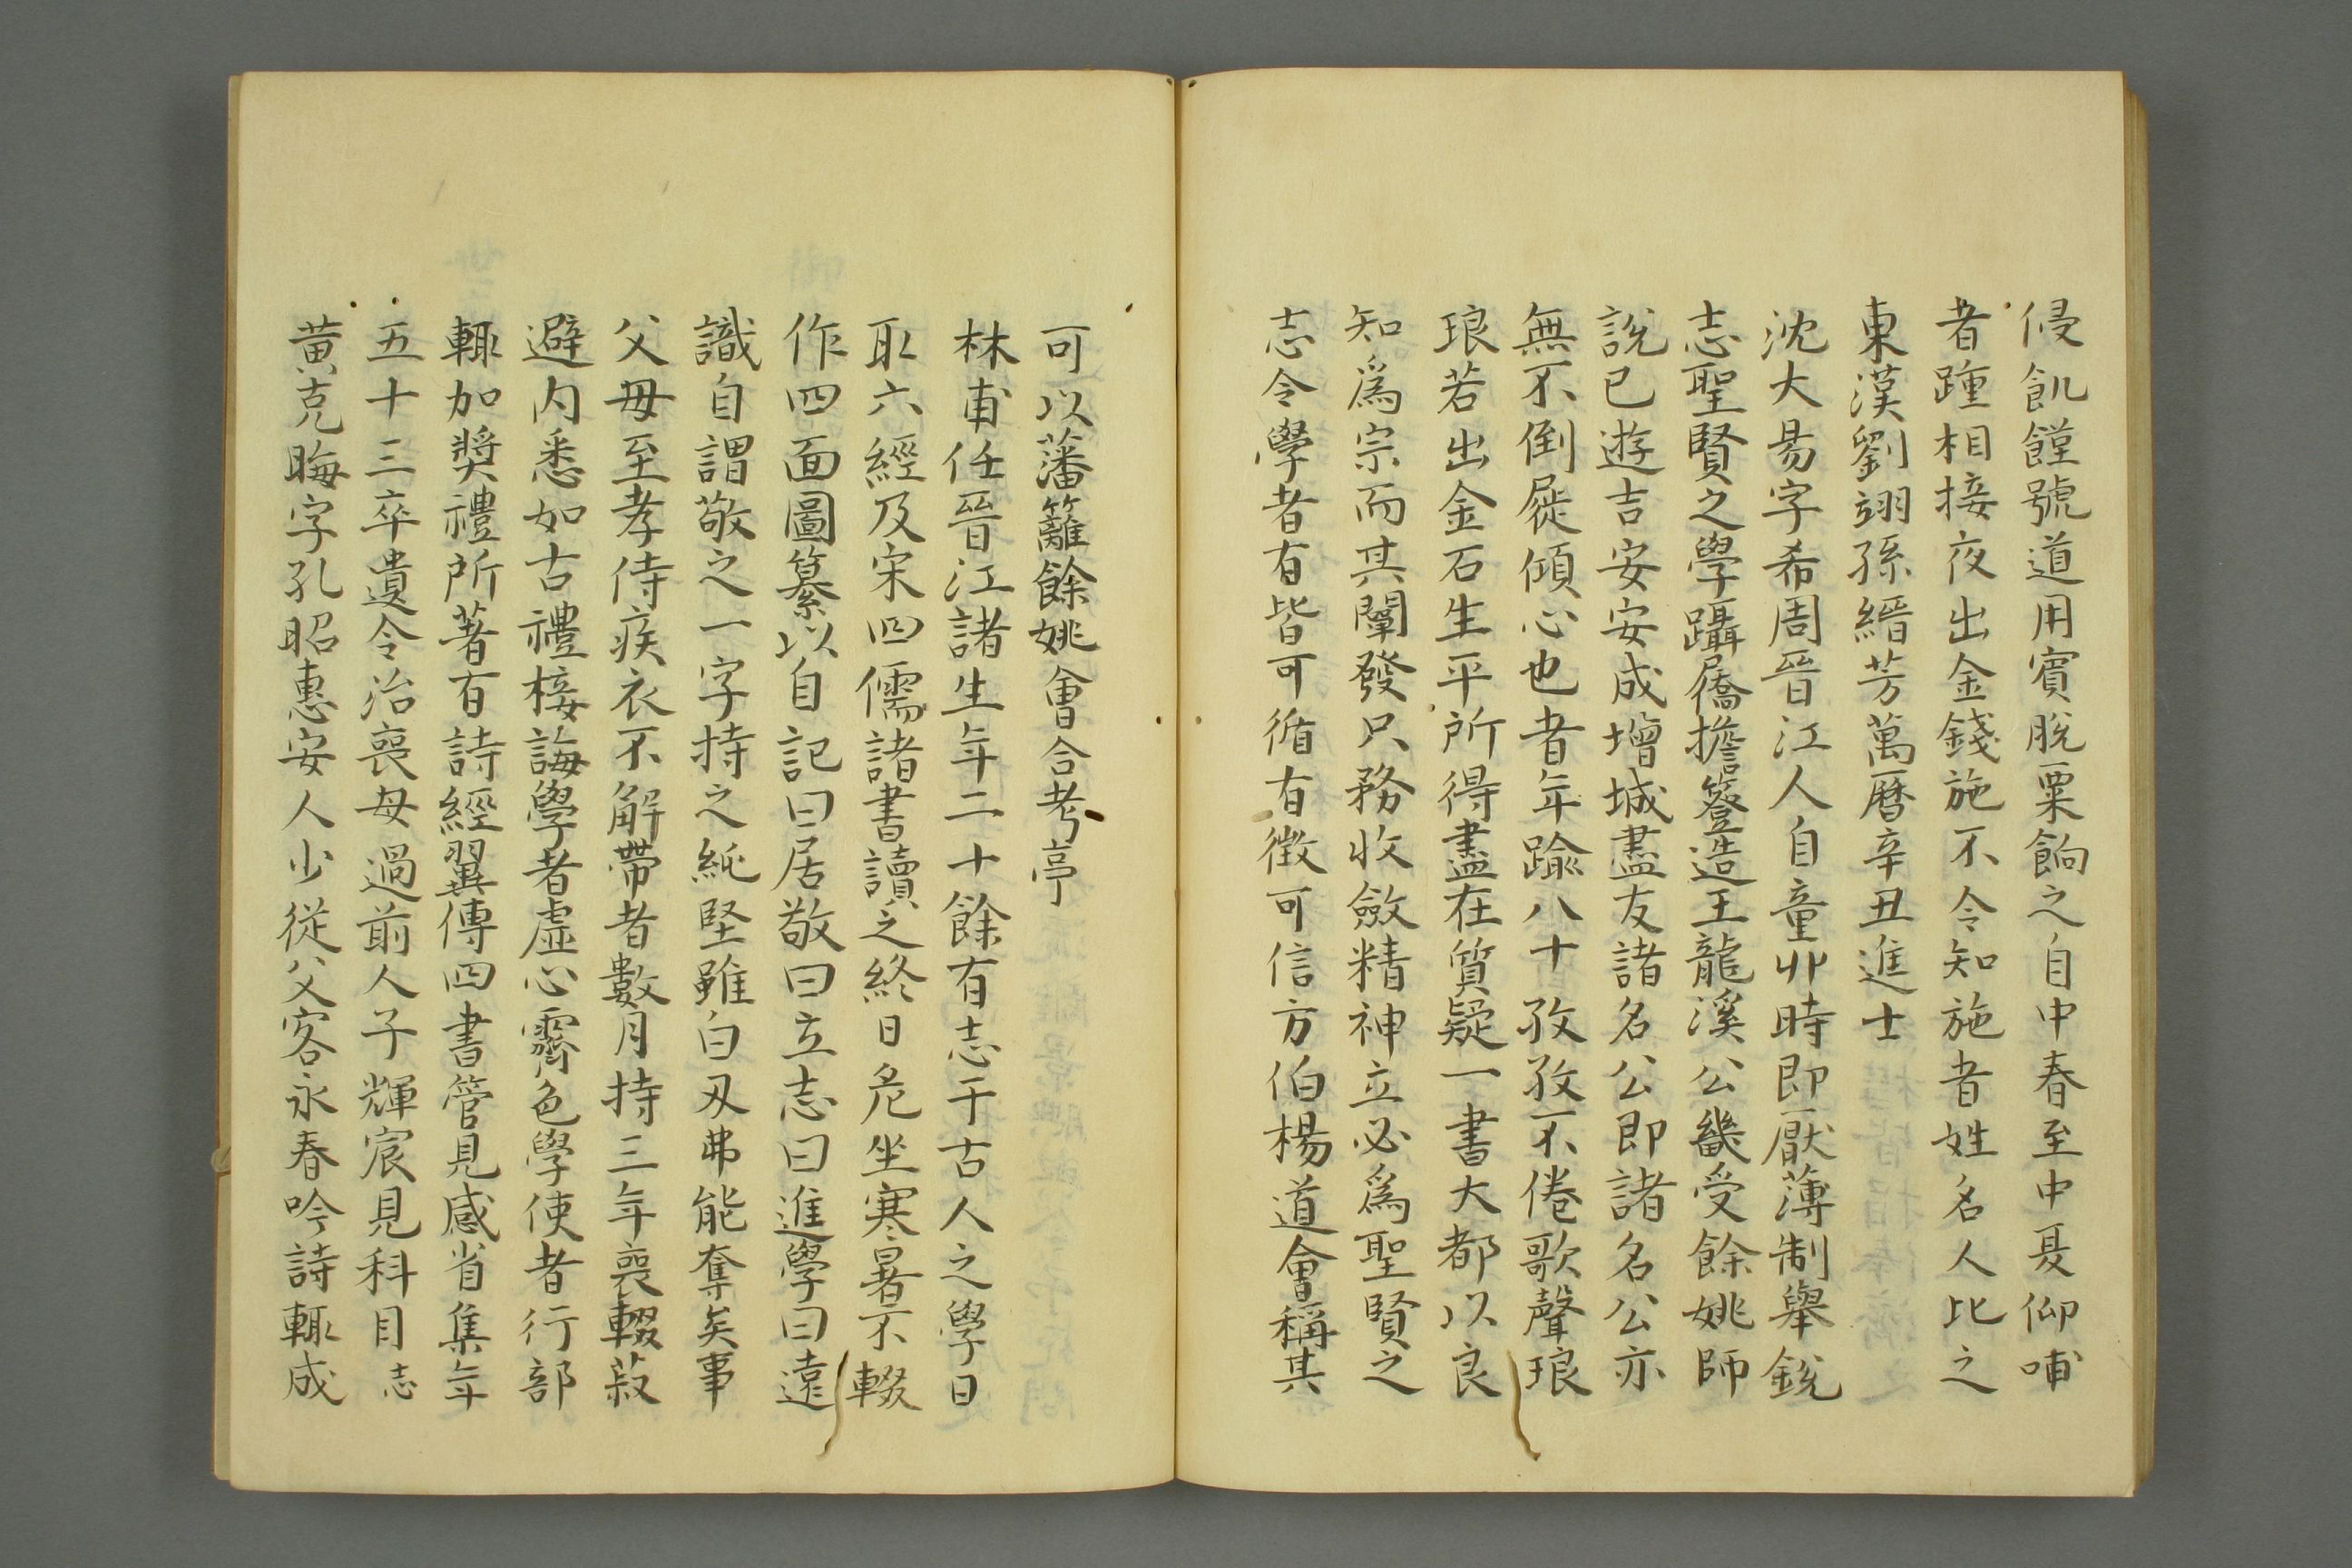 侵飢饉號道用賓脫粟餉之自中春至中夏仰哺
者踵相接夜出金錢施不令知施者姓名人比之
東漢劉翊孫縉芳萬曆辛丑進士
沈大易字希周晉江人自童丱時即厭薄制舉銳
志聖賢之學躡屩擔簦造王龍溪公畿受餘姚師
說已遊吉安安成增城盡友諸名公即諸名公亦
無不倒屣傾心也者年踰八十孜孜不倦歌聲琅
琅若出金石生平所得盡在質疑一書大都以良
知爲宗而其闡發只務收斂精神立必爲聖賢之
志令學者有皆可循有徵可信方伯楊道會稱其
可以藩籬餘姚會合考亭
林甫任晉江諸生年二十餘有志于古人之學日
取六經及宋四儒諸書讀之終日危坐寒暑不輟
作四面圖纂以自記曰居敬曰立志曰進學曰遠
識自謂敬之一字持之純堅雖白刃弗能奪矣事
父母至孝侍疾衣不解帶者數月持三年喪輟菽
避内悉如古禮接誨學者虛心霽色學使者行部
輒加獎禮所著有詩經翼傳四書管見感省集年
五十三卒遺令治喪毋過前人子輝宸見科目志
黃克晦字孔昭惠安人少從父客永春吟詩輒成